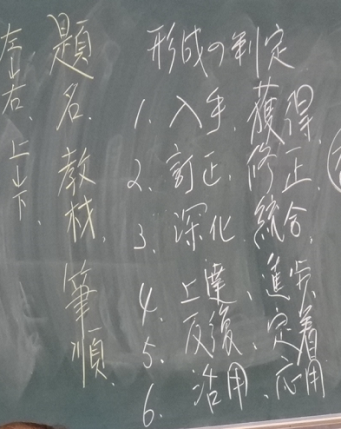 形成の判定
1. 入手、獲得、
2. 訂正、修正、
3. 深化、統合、
4. 上達、進歩、
5. 反復、定着
6. 活用、応用
題名、教材、筆順、
左右、上下、